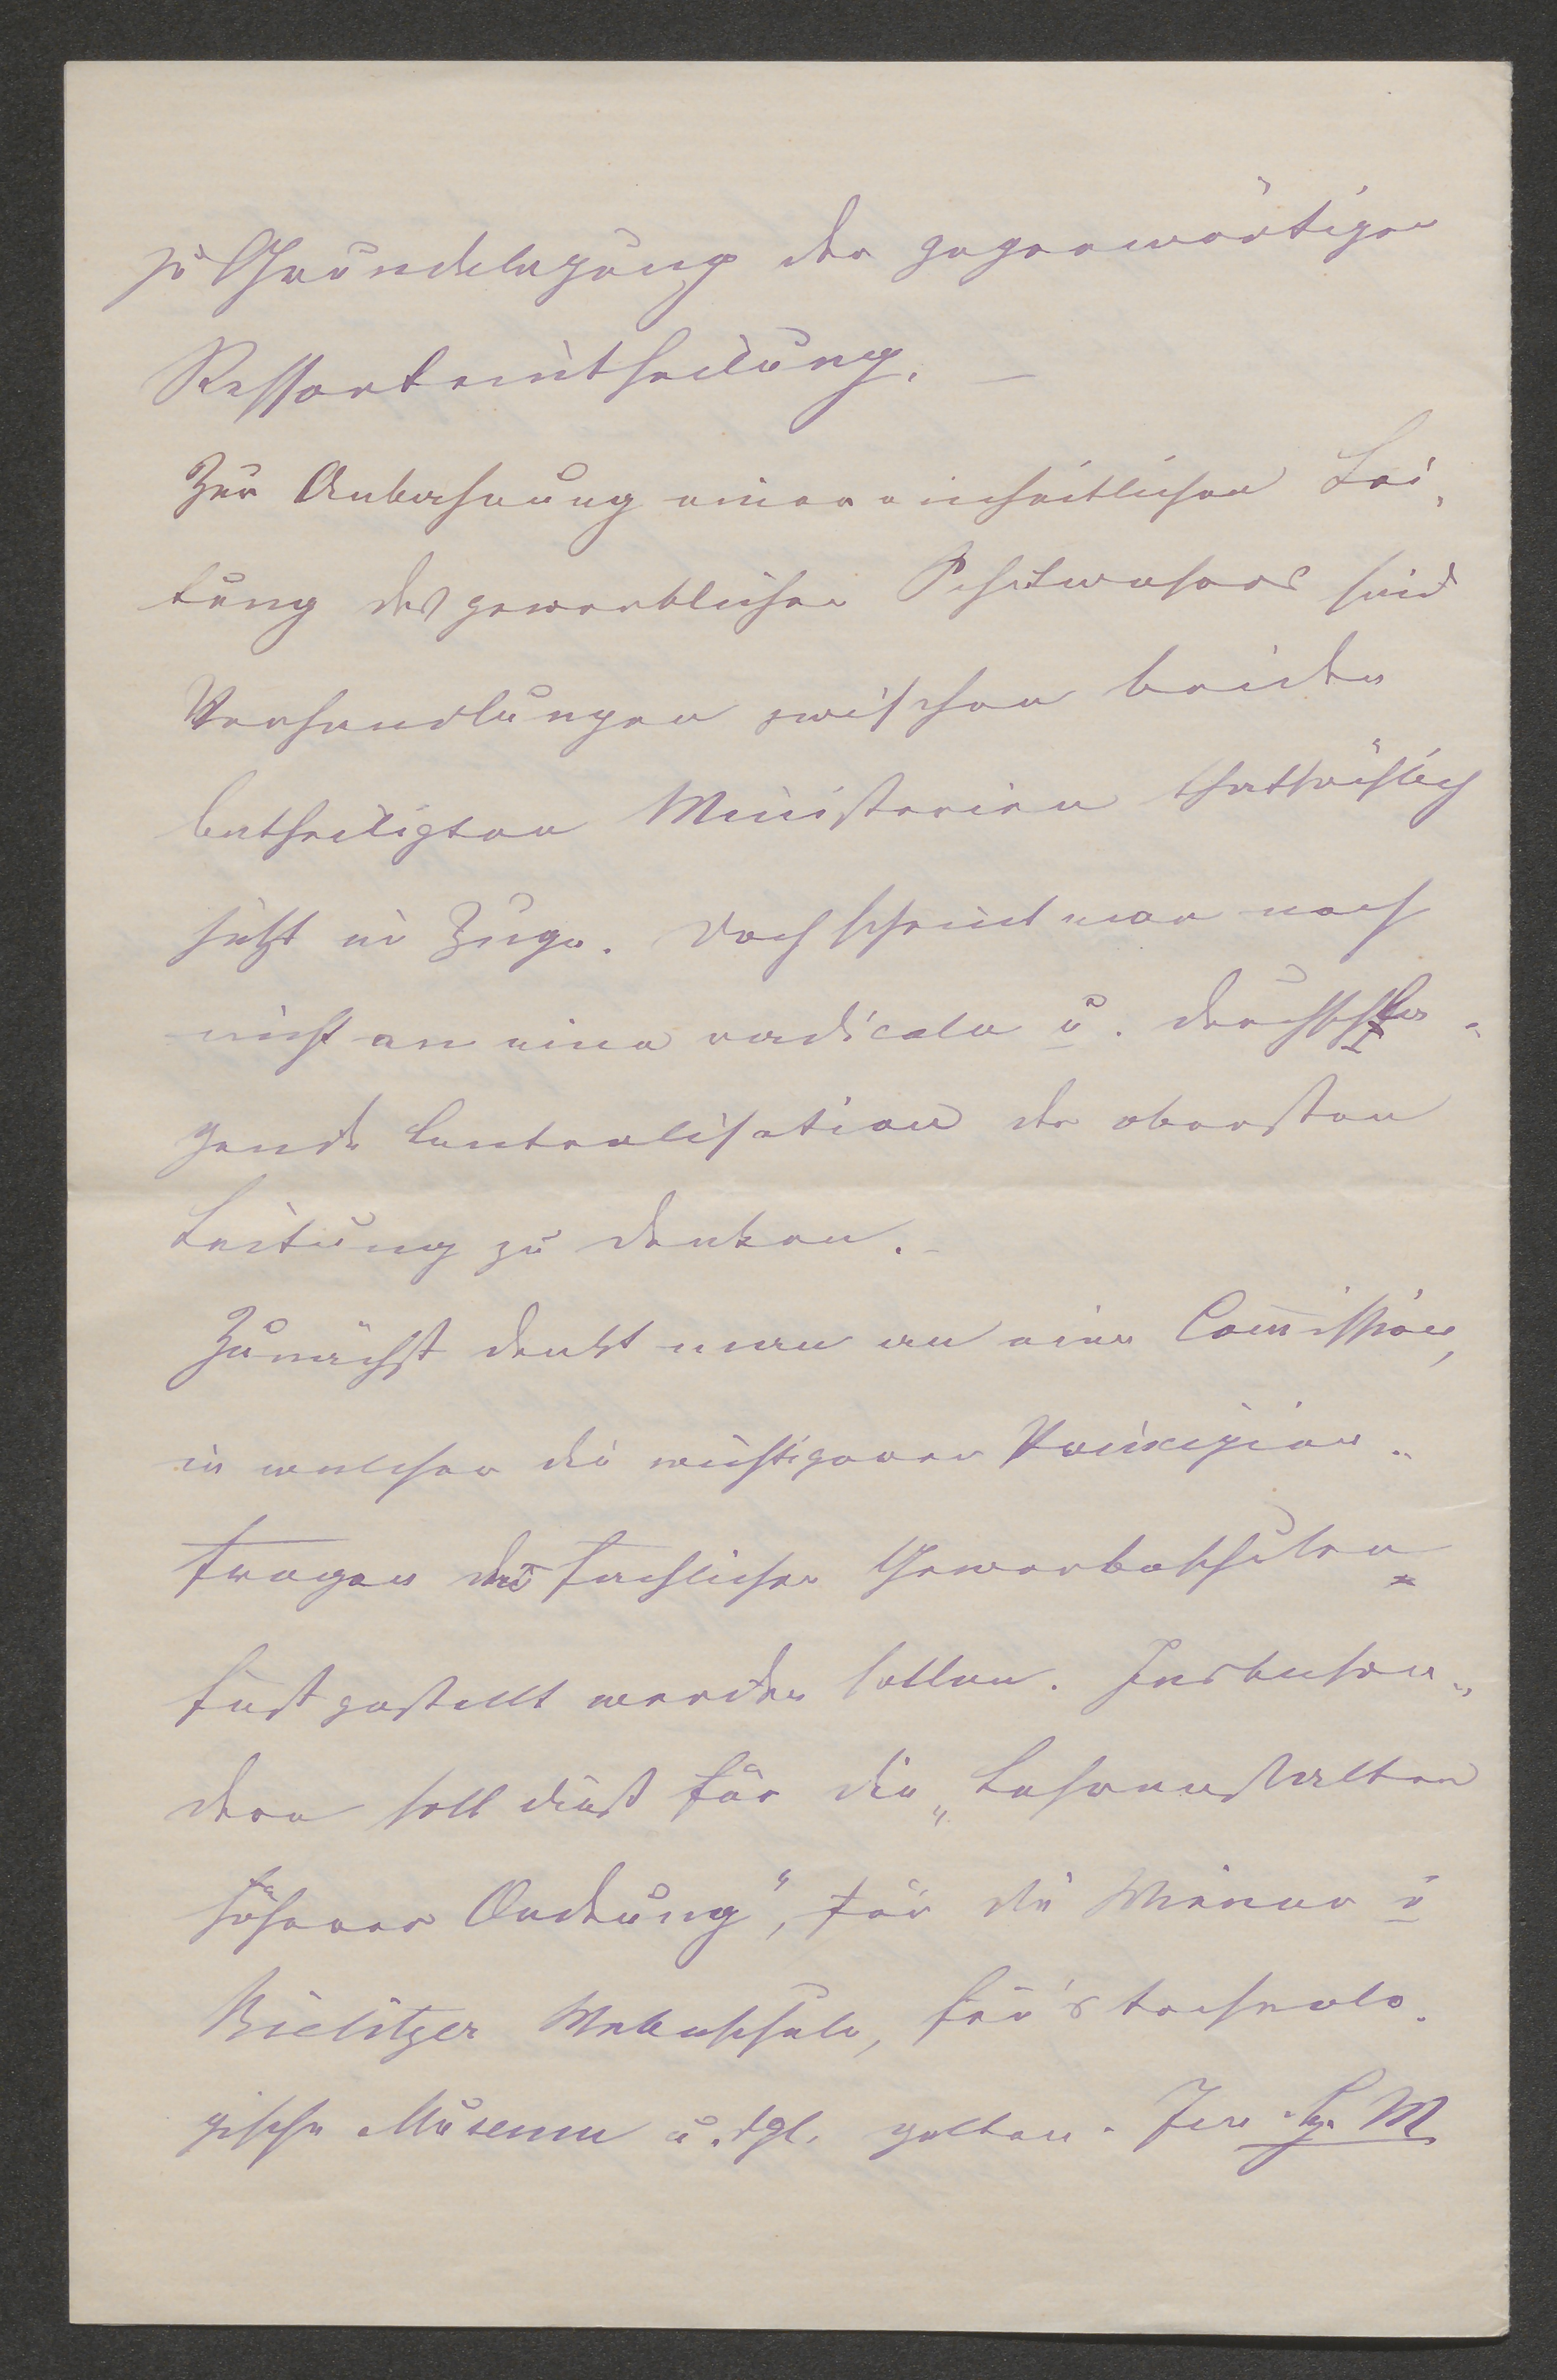 zu Grundelegung der gegenwärtigen
Ressorteintheilung. —
Zur Anbahnung einer einheitlichen Lei-
tung des gewerblichen Schulwesens sind
Verhandlungen zwischen beiden
betheiligten Ministerien thatsächlich
jetzt im Zuge. Doch scheint man noch
nicht an eine radicale u. durchschla-
gende Centralisation der obersten
Leitung zu denken. -
Zunächst denkt man an eine Com̅ission,
in welcher die wichtigeren Prinzipien-
fragen der fachlichen Gewerbeschulen
festgestellt werden sollen. Insbeson-
dere soll dieß für die „Lehranstalten
höherer Ordnung", für die Wiener u
Bielitzer Webeschule, für's technolo-
gische Museum u. dgl. gelten. Im H. M